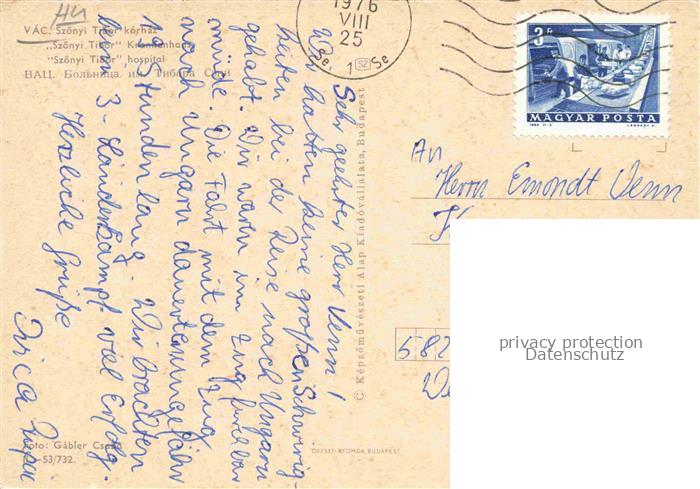 HU
VÁC. Szőnyi Tibor kórház
„Szőnyi Tibor" Krankenhaus
"Szőnyi Tibor" hospital
ВАЦ. Больница им. Тибора Сёни
1976
VIII
25
1
Se
SZ
3 Ft
MAGYAR POSTA
Sehr geehrter Herr Venn!
Wir hatten keine großen Schwierig-
keiten bei der Reise nach Ungarn
gehabt. Wir waren im Zug furchtbar
müde. Die Fahrt mit dem Zug
nach Ungarn dauerte ungefähr
Stunden lang. Wir brachten
beim 3-Länderkampf viel Erfolg.
Herzliche Grüße
© Képzőművészeti Alap Kiadóvállalata, Budapest
An
Herrn Emondt Venn
582
privacy protection
Datenschutz
Foto: Gábler Csaba
-53/732.
OFFSET-NYOMDA, BUDAPEST